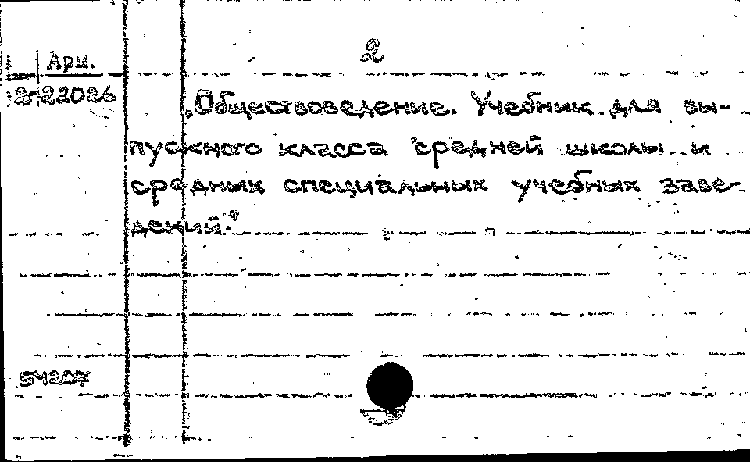 2
Арм.
2-22026
„Обществоведение. Учебник для вы-
пускного класса средней школы и
средних специальных учебных заве-
дений."
54207